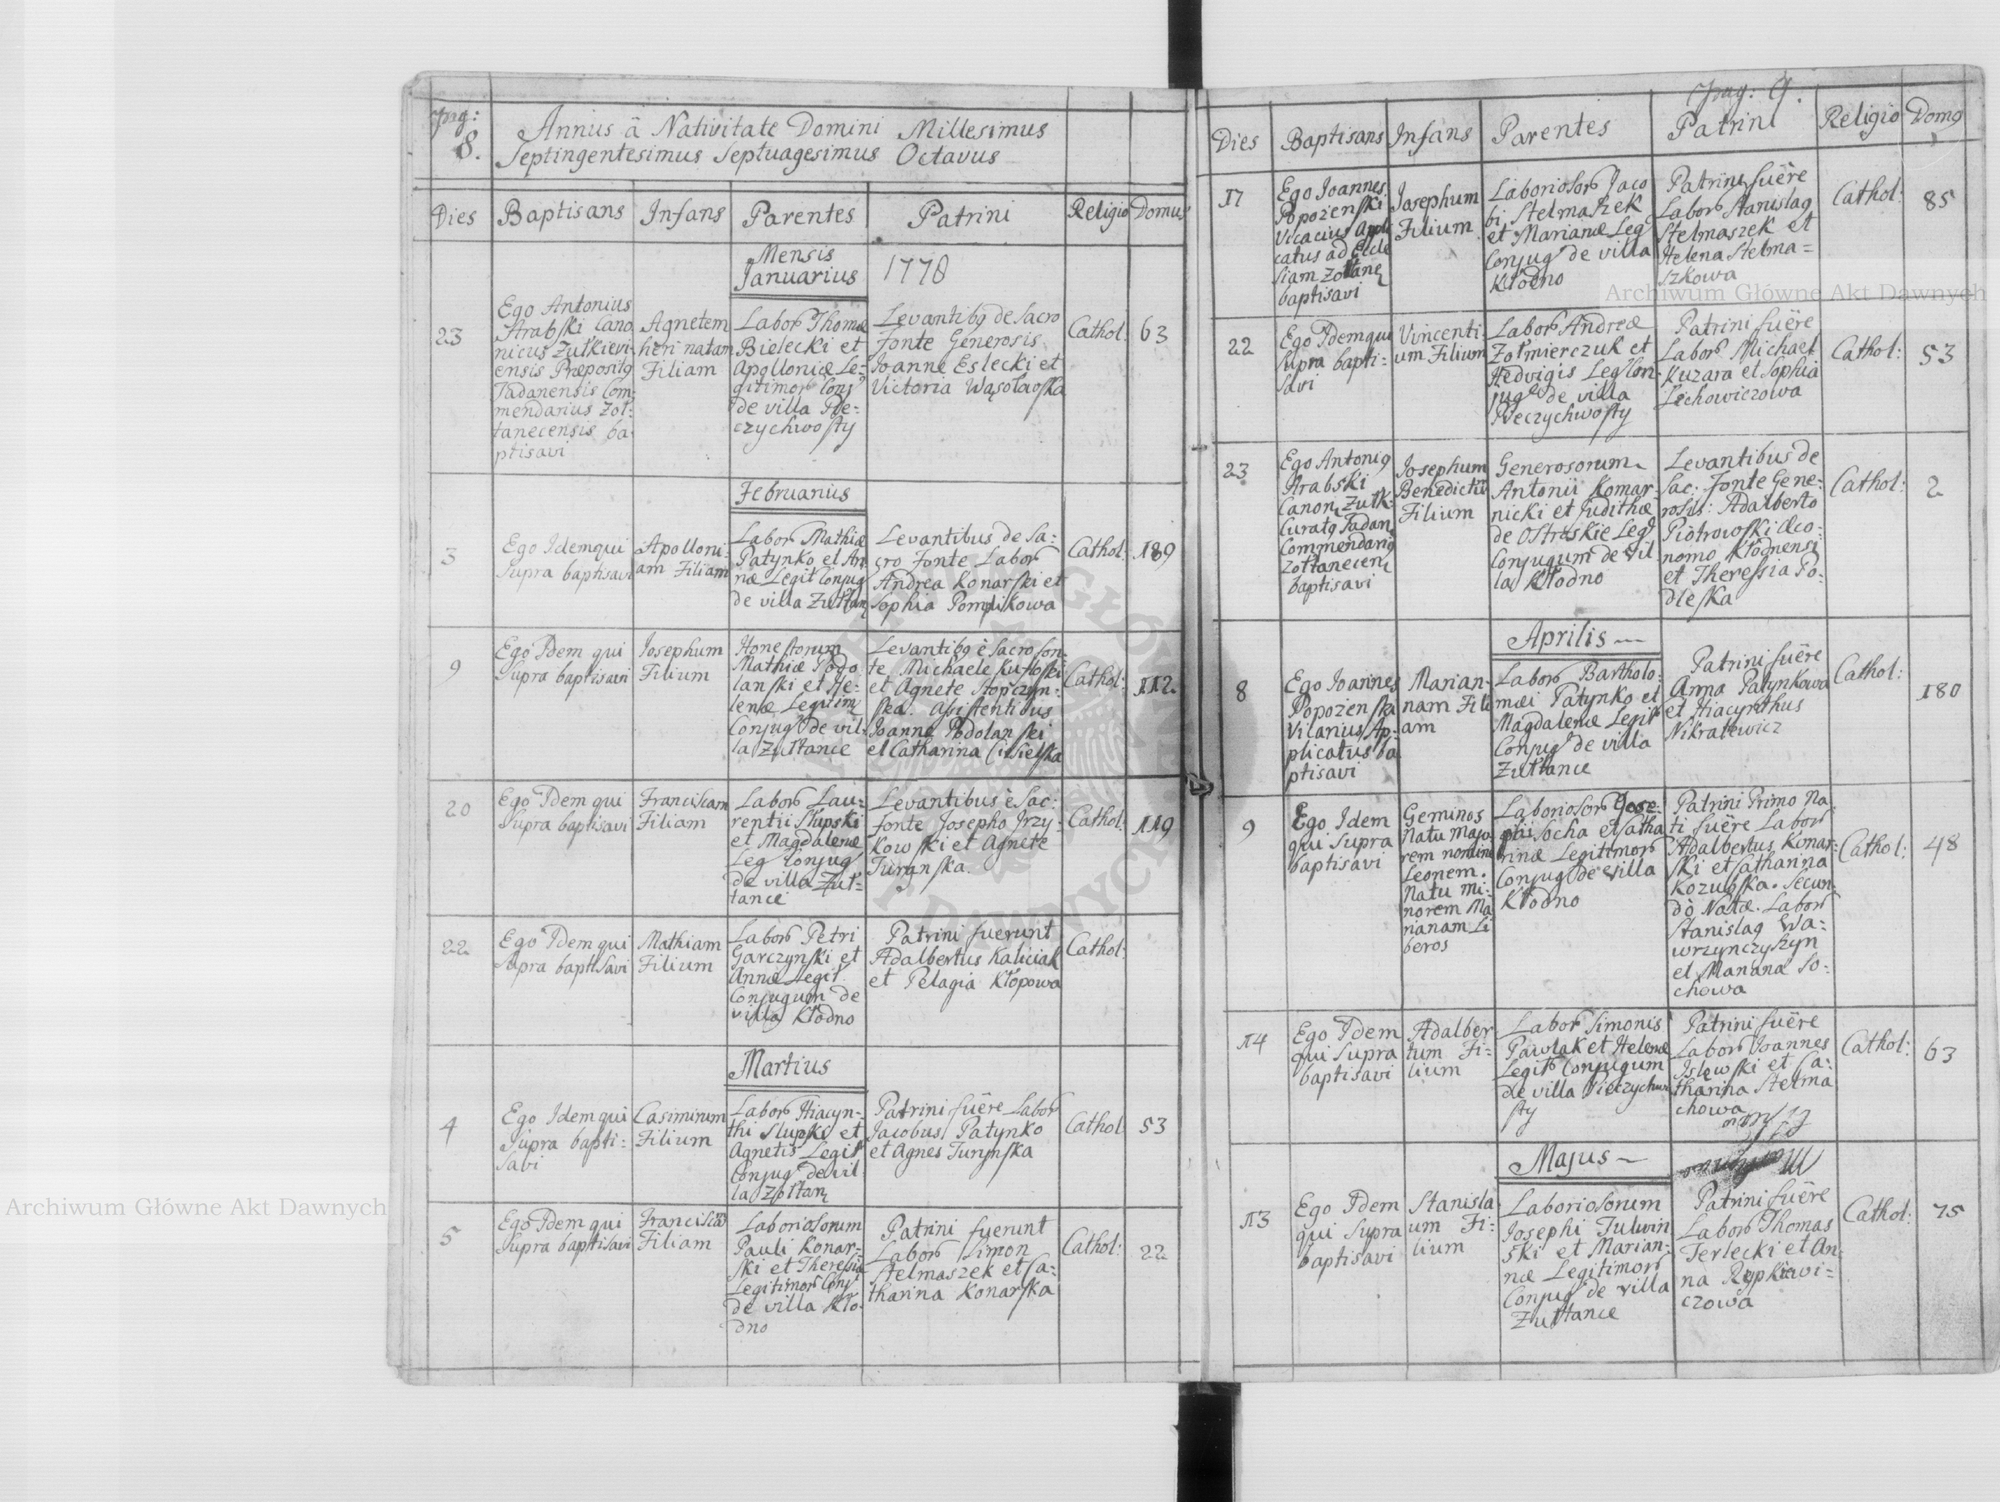 Pag:
8.
Annus â Nativitate Domini Millesimus
Septingentesimus Septuagesimus Octavus
Dies Baptisans Infans Parentes Patrini Religio Domus
Mensis
Januarius 1778
23
Ego Antonius
Arabski Cano
nicus Zułkievi-
ensis Præpositg
Tadanensis Com-
mendarius Zoł-
tanecensis ba-
ptisavi
Agnetem
heri natam
Filiam
Labor Thomæ
Bielecki et
Apolloniæ Le-
gitimor Conj
de villa Pie-
czychwosty
Levantibg de Sacro
Fonte Generosis
Joanne Eslecki et
Victoria
Cathol: 63
Februarius
3
Ego Idem qui
Supra baptisavi
Apolloni-
am Filiam
Labor Mathiæ
Patynko et An-
næ Legit Conjug
de villa Zułtan
Levantibus de Sa-
cro Fonte Labor
Andrea Konarski et
Sophia Pomplikowa
Cathol: 189
9
Ego Idem qui
Supra baptisavi
Josephum
Filium
Honestorum
Mathiæ Podo
lanski et He-
lenæ Legitim
Conjug de vil-
la Zułtance
Levantibg è Sacro fon-
te Michaele
et Agnete Stopczyn-
ska. Assistentibus
Joanne Podolanski
et Catharina Cisielska
Cathol: 112.
20
Ego Idem qui
Supra baptisavi
Franciscam
Filiam
Labor Lau-
rentii Słupski
et Magdalenæ
Leg Conjug
de villa Zuł-
tance
Levantibus è Sac:
Fonte Josepho Jrzy-
kowski et Agnete
Turynska.
Cathol: 119
22
Ego Idem qui
Supra baptisavi
Mathiam
Filium
Labor Petri
Garczynski et
Annæ Legit
Conjugum de
villa Kłodno
Patrini fuerunt
Adalbertus Kaliciak
et Pelagia Kłopowa
Cathol:
Martius
4
Ego Idem qui
Supra bapti-
savi
Casimirum
Filium
Labor Hiacyn-
thi Słupski et
Agnetis Legit
Conjug de vil
la Zołtan
Patrini fuêre Labor
Jacobus Patynko
et Agnes Turynska
Cathol 53
5
Ego Idem qui
Supra baptisavi
Francisca
Filiam
Laboriosorum
Pauli Konar-
ski et Theresia
Legitimor Conj
de villa Kło-
dno
Patrini fuerunt
Labor Simon
Stelmaszek et Ca-
tharina Konarska
Cathol: 22
Pag: 9.
Dies Baptisans Infans Parentes Patrini Religio Domg
17
Ego Joannes
Popożenski
Vicarius Appli
catus ad Eccle
siam Zołtane
baptisavi
Josephum
Filium
Laboriosor Jaco
bi Stelmaszek
et Marianæ Leg
Conjug de villa
Kłodno
Patrini fuêre
Labor Stanislag
Stelmaszek et
Helena Stelma-
szkowa
Cathol: 85
22
Ego Idemqui
Supra bapti-
savi
Vincenti-
um Filium
Labor Andreæ
Zołmierczuk et
Hedvigis Leg Con-
jug de villa
Pieczychwosty
Patrini fuêre
Labor Michael
Kuzara et Sophia
Lechowiczowa
Cathol: 53
23
Ego Antonig
Arabski
Canon Zułk:
Curatg Tadan
Commendarig
Zołtanecen
baptisavi
Josephum
Benedictū
Filium
Generosorum
Antonii Komar-
nicki et Judithæ
de Ostreskie Leg
Conjugum de vil
la Kłodno
Levantibus de
Sac: Fonte Gene-
rosis: Adalberto
Piotrowski Œco-
nomo Kłodnensi
et Theressia Po-
dleska
Cathol: 2
Aprilis
8
Ego Joannes
Popożenska
Vicarius Ap-
plicatus ba
ptisavi
Marian-
nam Fili
am
Labor Bartholo-
mæi Patynko et
Magdalenæ Legit
Conjug de villa
Zułtance
Patrini fuêre
Anna Patynkowa
et Hiacynthus
Nikratewicz
Cathol: 180
9
Ego Idem
qui Supra
baptisavi
Geminos
Natu Majo
rem nomine
Leonem.
Natu mi-
norem Ma
rianam Li
beros
Laboriosor Jose-
phi Socha et Catha
rinæ Legitimor
Conjug de villa
Kłodno
Patrini Primo Na-
ti fuêre Labor
Adalbertus Konar-
ski et Catharina
Kozubska. Secun-
dò Natæ. Labor
Stanislag Wa-
wrzynczyszyn
et Mariana So-
chowa
Cathol: 48
14
Ego Idem
qui Supra
baptisavi
Adalber
tum Fi-
lium
Labor Simonis
Pawlak et Helenæ
Legit Conjugum
de villa Pieczychwo
sty
Patrini fuêre
Labor Joannes
et Ca-
tharina Stelma
chowa
Cathol: 63
Majus
13
Ego Idem
qui Supra
baptisavi
Stanisla
um Fi-
lium
Laboriosorum
Josephi Tulwin
ski et Marian-
næ Legitimor
Conjug de villa
Zułtance
Patrini fuêre
Labor Thomas
Terlecki et An-
na Rypkiewi-
czowa
Cathol: 75
Archiwum Główne Akt Dawnych
Archiwum Główne Akt Dawnych